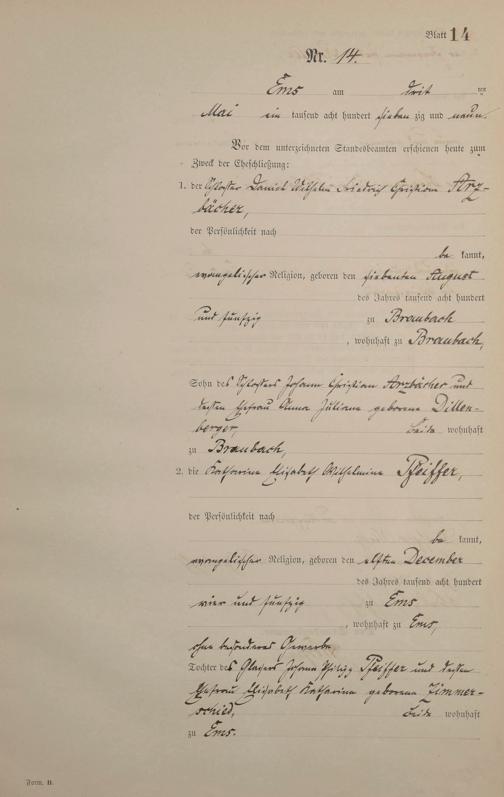 Blatt 14
Nr. 14.
Ems am drit ten
Mai ein tausend acht hundert sieben zig und neun.
Vor dem unterzeichneten Standesbeamten erschienen heute zum
Zweck der Eheschließung:
1. der Schlosser Daniel Wilhelm Friedrich Christian Arz-
bächer,
der Persönlichkeit nach
be kannt,
evangelischer Religion, geboren den siebenten August
des Jahres tausend acht hundert
und funfzig zu Braubach
, wohnhaft zu Braubach,
Sohn des Schlossers Johann Christian Arzbächer und
dessen Ehefrau Anna Juliane geborene Dillen-
berger, beide wohnhaft
zu Braubach,
2. die Katharina Elisabeth Wilhelmine Pfeiffer,
der Persönlichkeit nach
be kannt,
evangelischer Religion, geboren den elften December
des Jahres tausend acht hundert
vier und funfzig zu Ems
, wohnhaft zu Ems,
ohne besonderes Gewerbe
Tochter des Glasers Johann Philipp Pfeiffer und dessen
Ehefrau Elisabeth Katharina geborene Zimmer-
schied, beide wohnhaft
zu Ems.
Form. B.